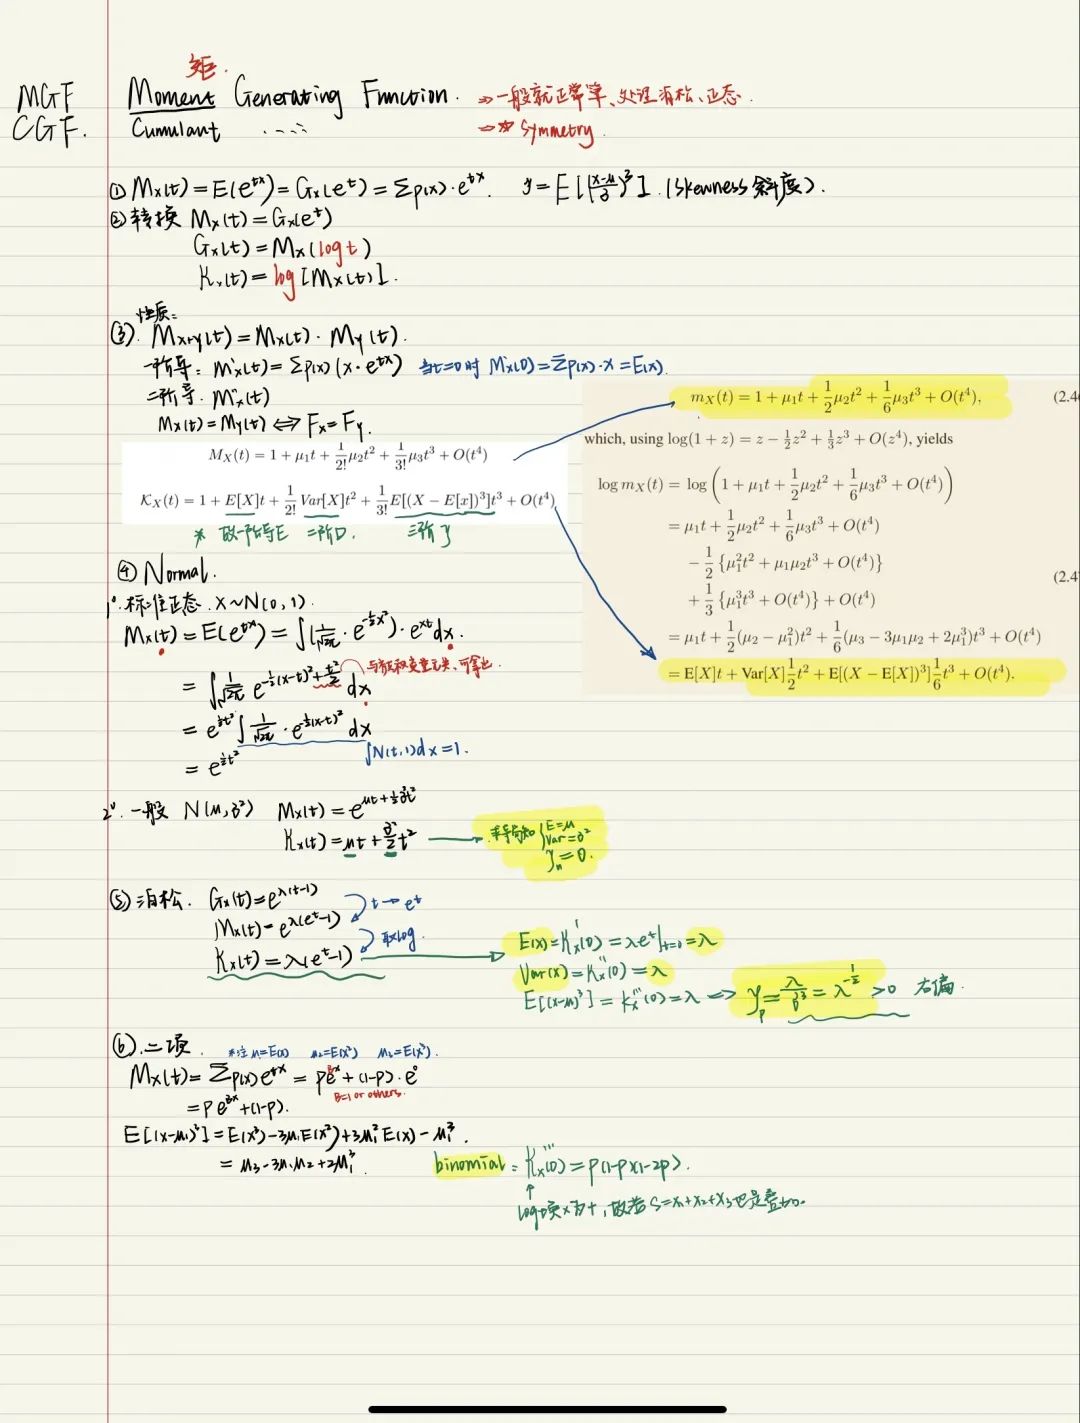 矩.
MGF Moment Generating Function. ⇒一般就正常算、处理泊松、正态.
CGF. Cumulant ..... ⇒* Symmetry.
① Mx(t) = E(e^{tx}) = Gx(e^t) = Σp(x)·e^{tx}. γ = E[(\frac{x-μ}{σ})^3]. (skewness 斜度).
② 转换 Mx(t) = Gx(e^t)
Gx(t) = Mx(log t)
Kx(t) = log[Mx(t)].
性质:
③. Mx+y(t) = Mx(t)·My(t).
一阶导: M'x(t) = Σp(x)(x·e^{tx}) 当t=0时 M'x(0) = Σp(x)·x = E(x).
二阶导. M''x(t)
Mx(t) = My(t) ⟺ Fx = Fy.
M_X(t) = 1 + μ_1t + \frac{1}{2!}μ_2t^2 + \frac{1}{3!}μ_3t^3 + O(t^4)
K_X(t) = 1 + E[X]t + \frac{1}{2!}Var[X]t^2 + \frac{1}{3!}E[(X − E[x])^3]t^3 + O(t^4)
* 故一阶导E 二阶D. 三阶γ
m_X(t) = 1 + μ_1t + \frac{1}{2}μ_2t^2 + \frac{1}{6}μ_3t^3 + O(t^4), (2.4
which, using log(1 + z) = z − \frac{1}{2}z^2 + \frac{1}{3}z^3 + O(z^4), yields
log m_X(t) = log (1 + μ_1t + \frac{1}{2}μ_2t^2 + \frac{1}{6}μ_3t^3 + O(t^4))
= μ_1t + \frac{1}{2}μ_2t^2 + \frac{1}{6}μ_3t^3 + O(t^4)
− \frac{1}{2}{μ_1^2t^2 + μ_1μ_2t^3 + O(t^4)}
+ \frac{1}{3}{μ_1^3t^3 + O(t^4)} + O(t^4) (2.4
= μ_1t + \frac{1}{2}(μ_2 − μ_1^2)t^2 + \frac{1}{6}(μ_3 − 3μ_1μ_2 + 2μ_1^3)t^3 + O(t^4)
= E[X]t + Var[X]\frac{1}{2}t^2 + E[(X − E[X])^3]\frac{1}{6}t^3 + O(t^4).
④ Normal.
1°. 标准正态. X~N(0,1).
Mx(t) = E(e^{tx}) = ∫(\frac{1}{\sqrt{2π}}·e^{-\frac{1}{2}x^2})·e^{xt}dx.
= ∫\frac{1}{\sqrt{2π}} e^{-\frac{1}{2}(x-t)^2+\frac{t^2}{2}} dx 与被积变量无关, 可拿出.
= e^{\frac{1}{2}t^2}∫\frac{1}{\sqrt{2π}}·e^{-\frac{1}{2}(x-t)^2} dx
= e^{\frac{1}{2}t^2} ∫N(t,1)dx = 1.
2°. 一般 N(μ,σ^2) Mx(t) = e^{μt+\frac{1}{2}σ^2t^2}
Kx(t) = μt + \frac{σ^2}{2}t^2 → 求导易知 { E=μ
Var=σ^2
γ_n = 0.
⑤ 泊松. Gx(t) = e^{λ(t-1)}
Mx(t) = e^{λ(e^t-1)} t→e^t
Kx(t) = λ(e^t-1) 取log.
E(x) = K'x(0) = λe^t|_{t=0} = λ
Var(x) = K''x(0) = λ
E[(x-μ)^3] = K'''x(0) = λ ⇒ γ_p = \frac{λ}{σ^3} = λ^{-\frac{1}{2}} > 0 右偏.
⑥. 二项. *注 μ_1=E(x) μ_2=E(x^2) μ_3=E(x^3).
Mx(t) = Σp(x)e^{tx} = pe^{Bx} + (1-p)·e^0
B=1 or others.
= pe^{Bx} + (1-p).
E[(x-μ_1)^3] = E(x^3) - 3μ_1E(x^2) + 3μ_1^2E(x) - μ_1^3.
= μ_3 - 3μ_1μ_2 + 2μ_1^3.
binomial: K'''x(0) = p(1-p)(1-2p).
↑
log 换x为+, 故若 S=x_1+x_2+x_3也是叠加.